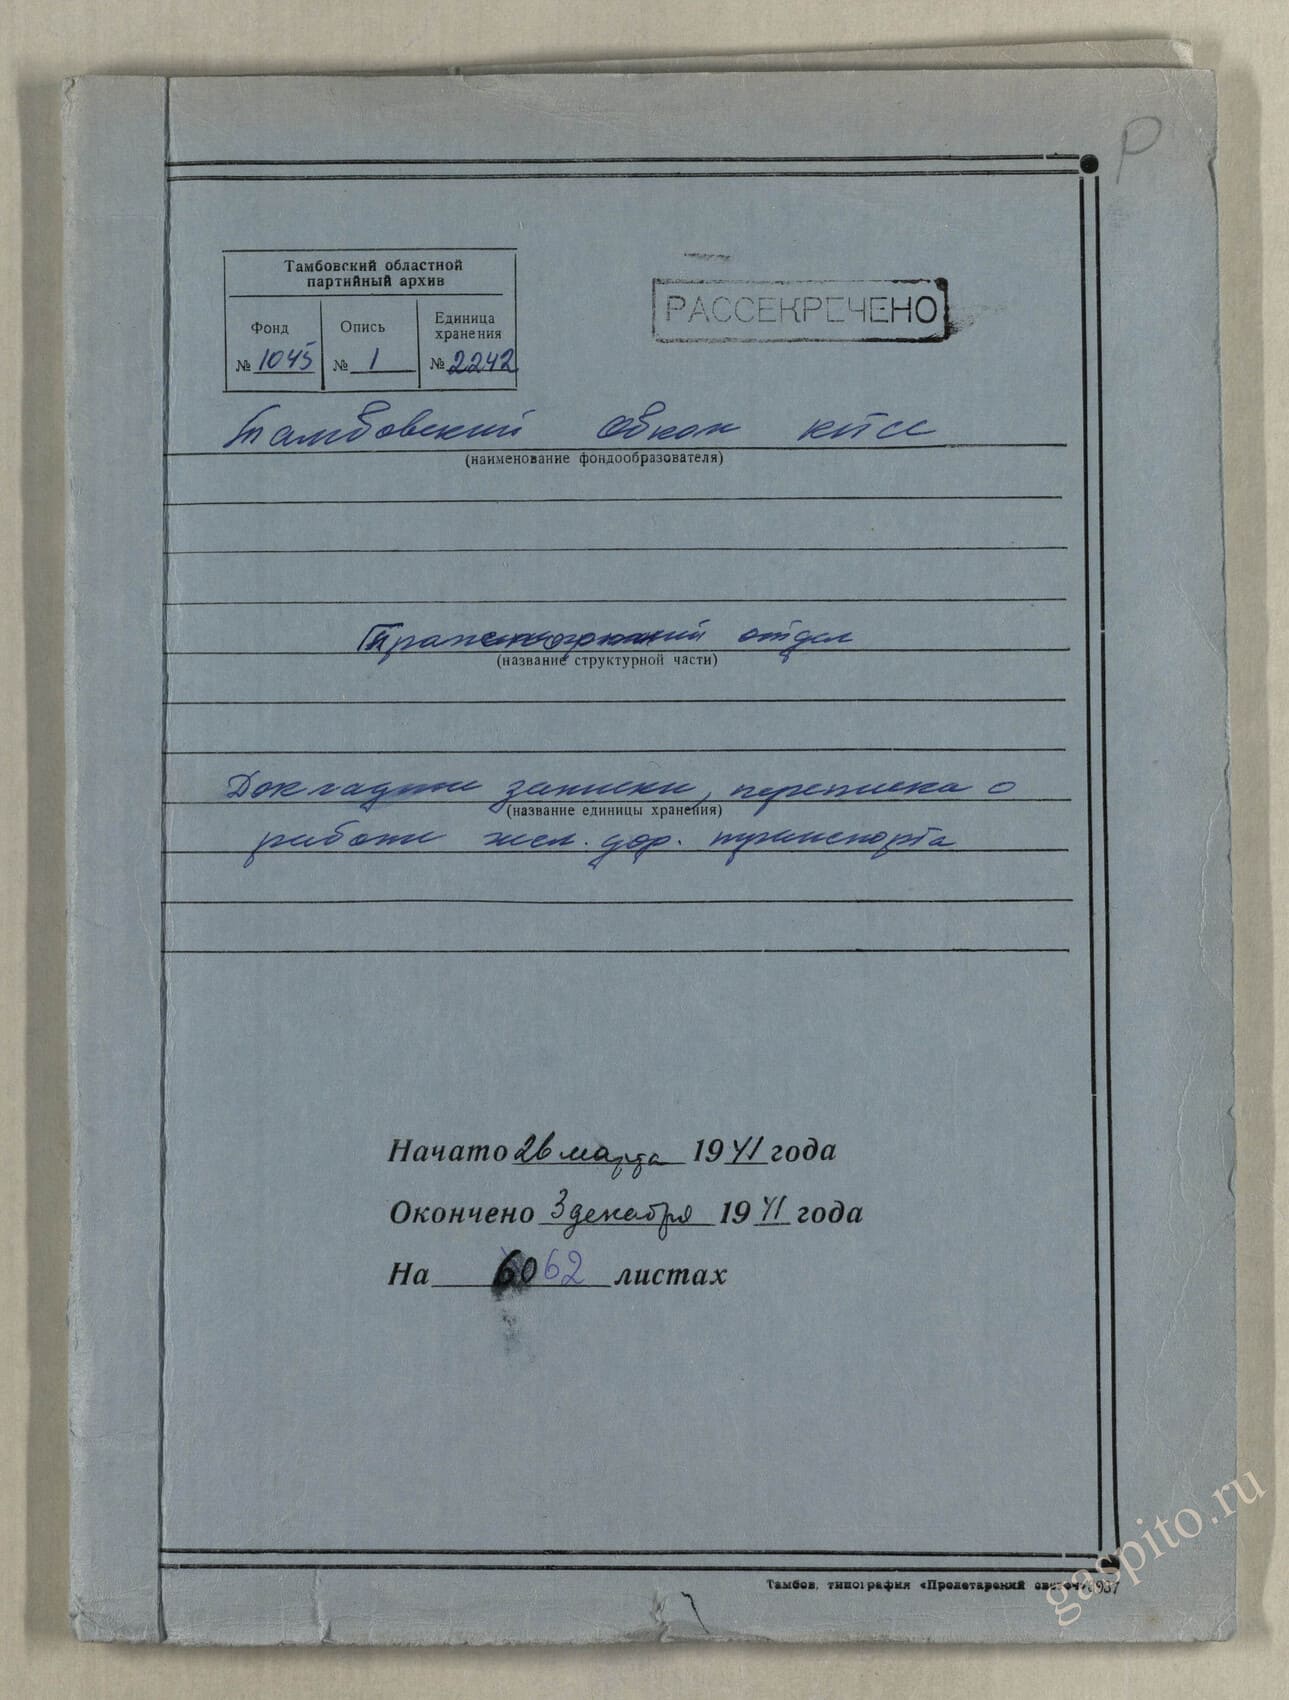 Р
Тамбовский областной
партийный архив
Фонд
Опись
Единица
хранения
№ 1045
№ 1
№ 2242
РАССЕКРЕЧЕНО
Тамбовский обком КПСС
(наименование фондообразователя)
Транспортный отдел
(название структурной части)
Докладные записки, переписка о
(название единицы хранения)
работе жел. дор. транспорта
Начато 26 марта 1941 года
Окончено 3 декабря 1941 года
На 60 62 листах
Тамбов, типография «Пролетарский светоч»
gaspito.ru